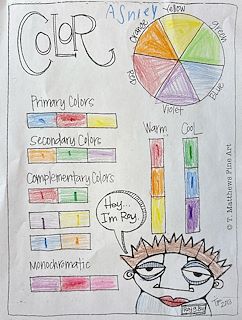 Ashley
COLOR
Yellow
Orange
green
Red
Blue
Violet
Primary Colors
Secondary Colors
Warm
Cool
Complementary Colors
Hey...
I'm Roy.
Monochromatic
© T. Matthews Fine Art